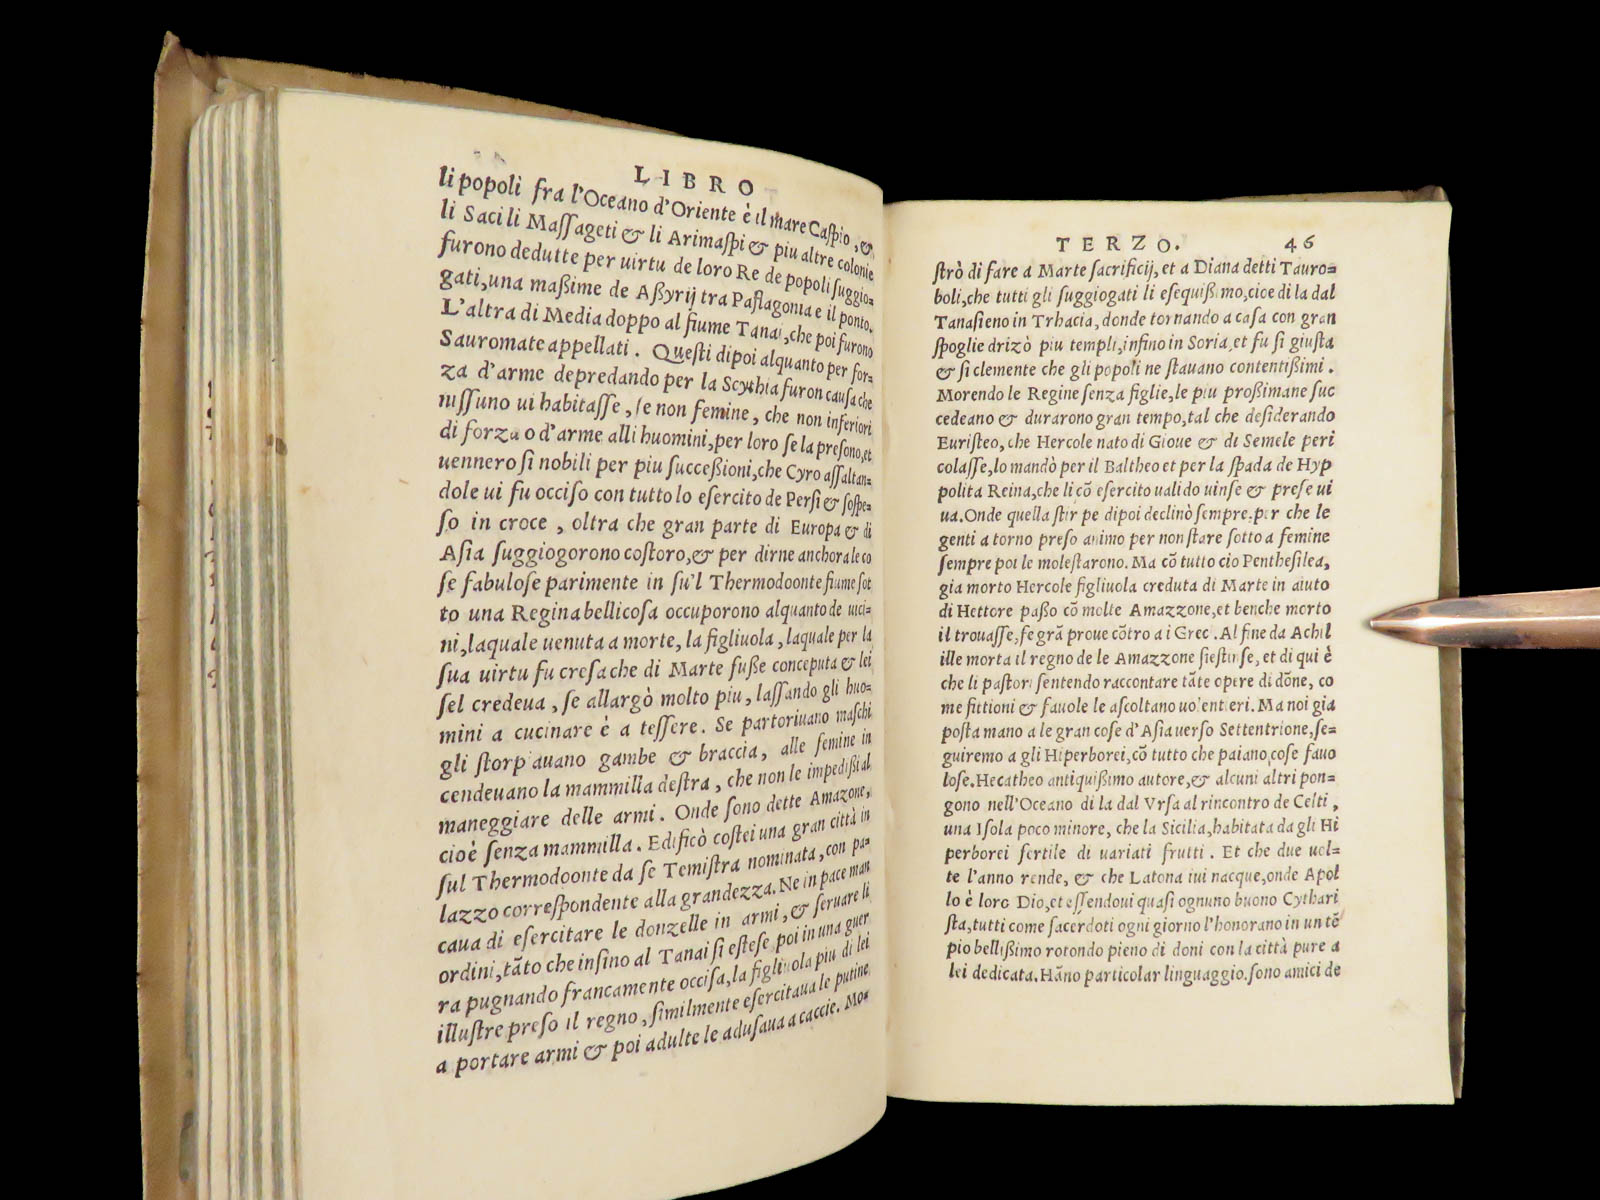 LIBRO
li popoli fra l'Oceano d'Oriente è il mare Caſpio, &
li Saci li Maſſageti & li Arimaſpi & piu altre colonie
furono dedutte per uirtu de loro Re de popoli ſuggio=
gati, una maßime de Aßyrij tra Paflagonia e il ponto.
L'altra di Media doppo al fiume Tanai, che poi furono
Sauromate appellati. Queſti dipoi alquanto per for=
za d'arme depredando per la Scythia furon cauſa che
niſſuno ui habitaſſe, ſe non femine, che non inferiori
di forza o d'arme alli huomini, per loro ſe la preſono, et
uennero ſi nobili per piu ſucceßioni, che Cyro aſſaltan=
dole ui fu occiſo con tutto lo eſercito de Perſi & ſoſpe=
ſo in croce, oltra che gran parte di Europa & di
Aſia ſuggiogorono coſtoro, & per dirne anchora le co
ſe fabuloſe parimente in ſu'l Thermodoonte fiume ſot
to una Regina bellicoſa occuporono alquanto de uici=
ni, laquale uenuta a morte, la figliuola, laquale per la
ſua uirtu fu creſa che di Marte fuße conceputa & lei
ſel credeua, ſe allargò molto piu, laſſando gli huo=
mini a cucinare è a teſſere. Se partoriuano maſchi
gli ſtorpiauano gambe & braccia, alle femine in
cendeuano la mammilla deſtra, che non le impedißi al
maneggiare delle armi. Onde ſono dette Amazone,
cioè ſenza mammilla. Edificò coſtei una gran città in
ſul Thermodoonte da ſe Temiſtra nominata, con pa=
lazzo correſpondente alla grandezza. Ne in pace man
caua di eſercitare le donzelle in armi, & ſeruare li
ordini, tãto che inſino al Tanai ſi eſteſe poi in una guer
ra pugnando francamente occiſa, la figliuola piu di lei
illuſtre preſo il regno, ſimilmente eſercitaua le putine
a portare armi & poi adulte le aduſaua a caccie. Mo=
TERZO. 46
ſtrò di fare a Marte ſacrificij, et a Diana detti Tauro=
boli, che tutti gli ſuggiogati li eſequißimo, cioe di la dal
Tanaſi eno in Trhacia, donde tornando a caſa con gran
ſpoglie drizò piu templi, infino in Soria, et fu ſi giuſta
& ſi clemente che gli popoli ne ſtauano contentißimi.
Morendo le Regine ſenza figlie, le piu proßimane ſuc
cedeano & durarono gran tempo, tal che deſiderando
Euriſteo, che Hercole nato di Gioue & di Semele peri
colaſſe, lo mandò per il Baltheo et per la ſpada de Hyp
polita Reina, che li cõ eſercito ualido uinſe & preſe ui
ua. Onde quella ſtirpe dipoi declinò ſempre, per che le
genti a torno preſo animo per non ſtare ſotto a femine
ſempre poi le moleſtarono. Ma cõ tutto cio Pentheſilea,
gia morto Hercole figliuola creduta di Marte in aiuto
di Hettore paßo cõ molte Amazzone, et benche morto
il trouaſſe, fe grã proue cõtro a i Greci. Al fine da Achil
ille morta il regno de le Amazzone ſi eſtinſe, et di qui è
che li paſtori ſentendo raccontare tãte opere di dõne, co
me fittioni & fauole le aſcoltano uolentieri. Ma noi gia
poſta mano a le gran coſe d'Aſia uerſo Settentrione, ſe=
guiremo a gli Hiperborei, cõ tutto che paiano coſe fauo
loſe. Hecatheo antiquißimo autore, & alcuni altri pon=
gono nell'Oceano di la dal Vrſa al rincontro de Celti,
una Iſola poco minore, che la Sicilia, habitata da gli Hi
perborei fertile di uariati frutti. Et che due uol=
te l'anno rende, & che Latona iui nacque, onde Apol
lo è loro Dio, et eſſendoui quaſi ognuno buono Cythari
ſta, tutti come ſacerdoti ogni giorno l'honorano in un tẽ
pio bellißimo rotondo pieno di doni con la città pure a
lei dedicata. Hãno particolar linguaggio. ſono amici de